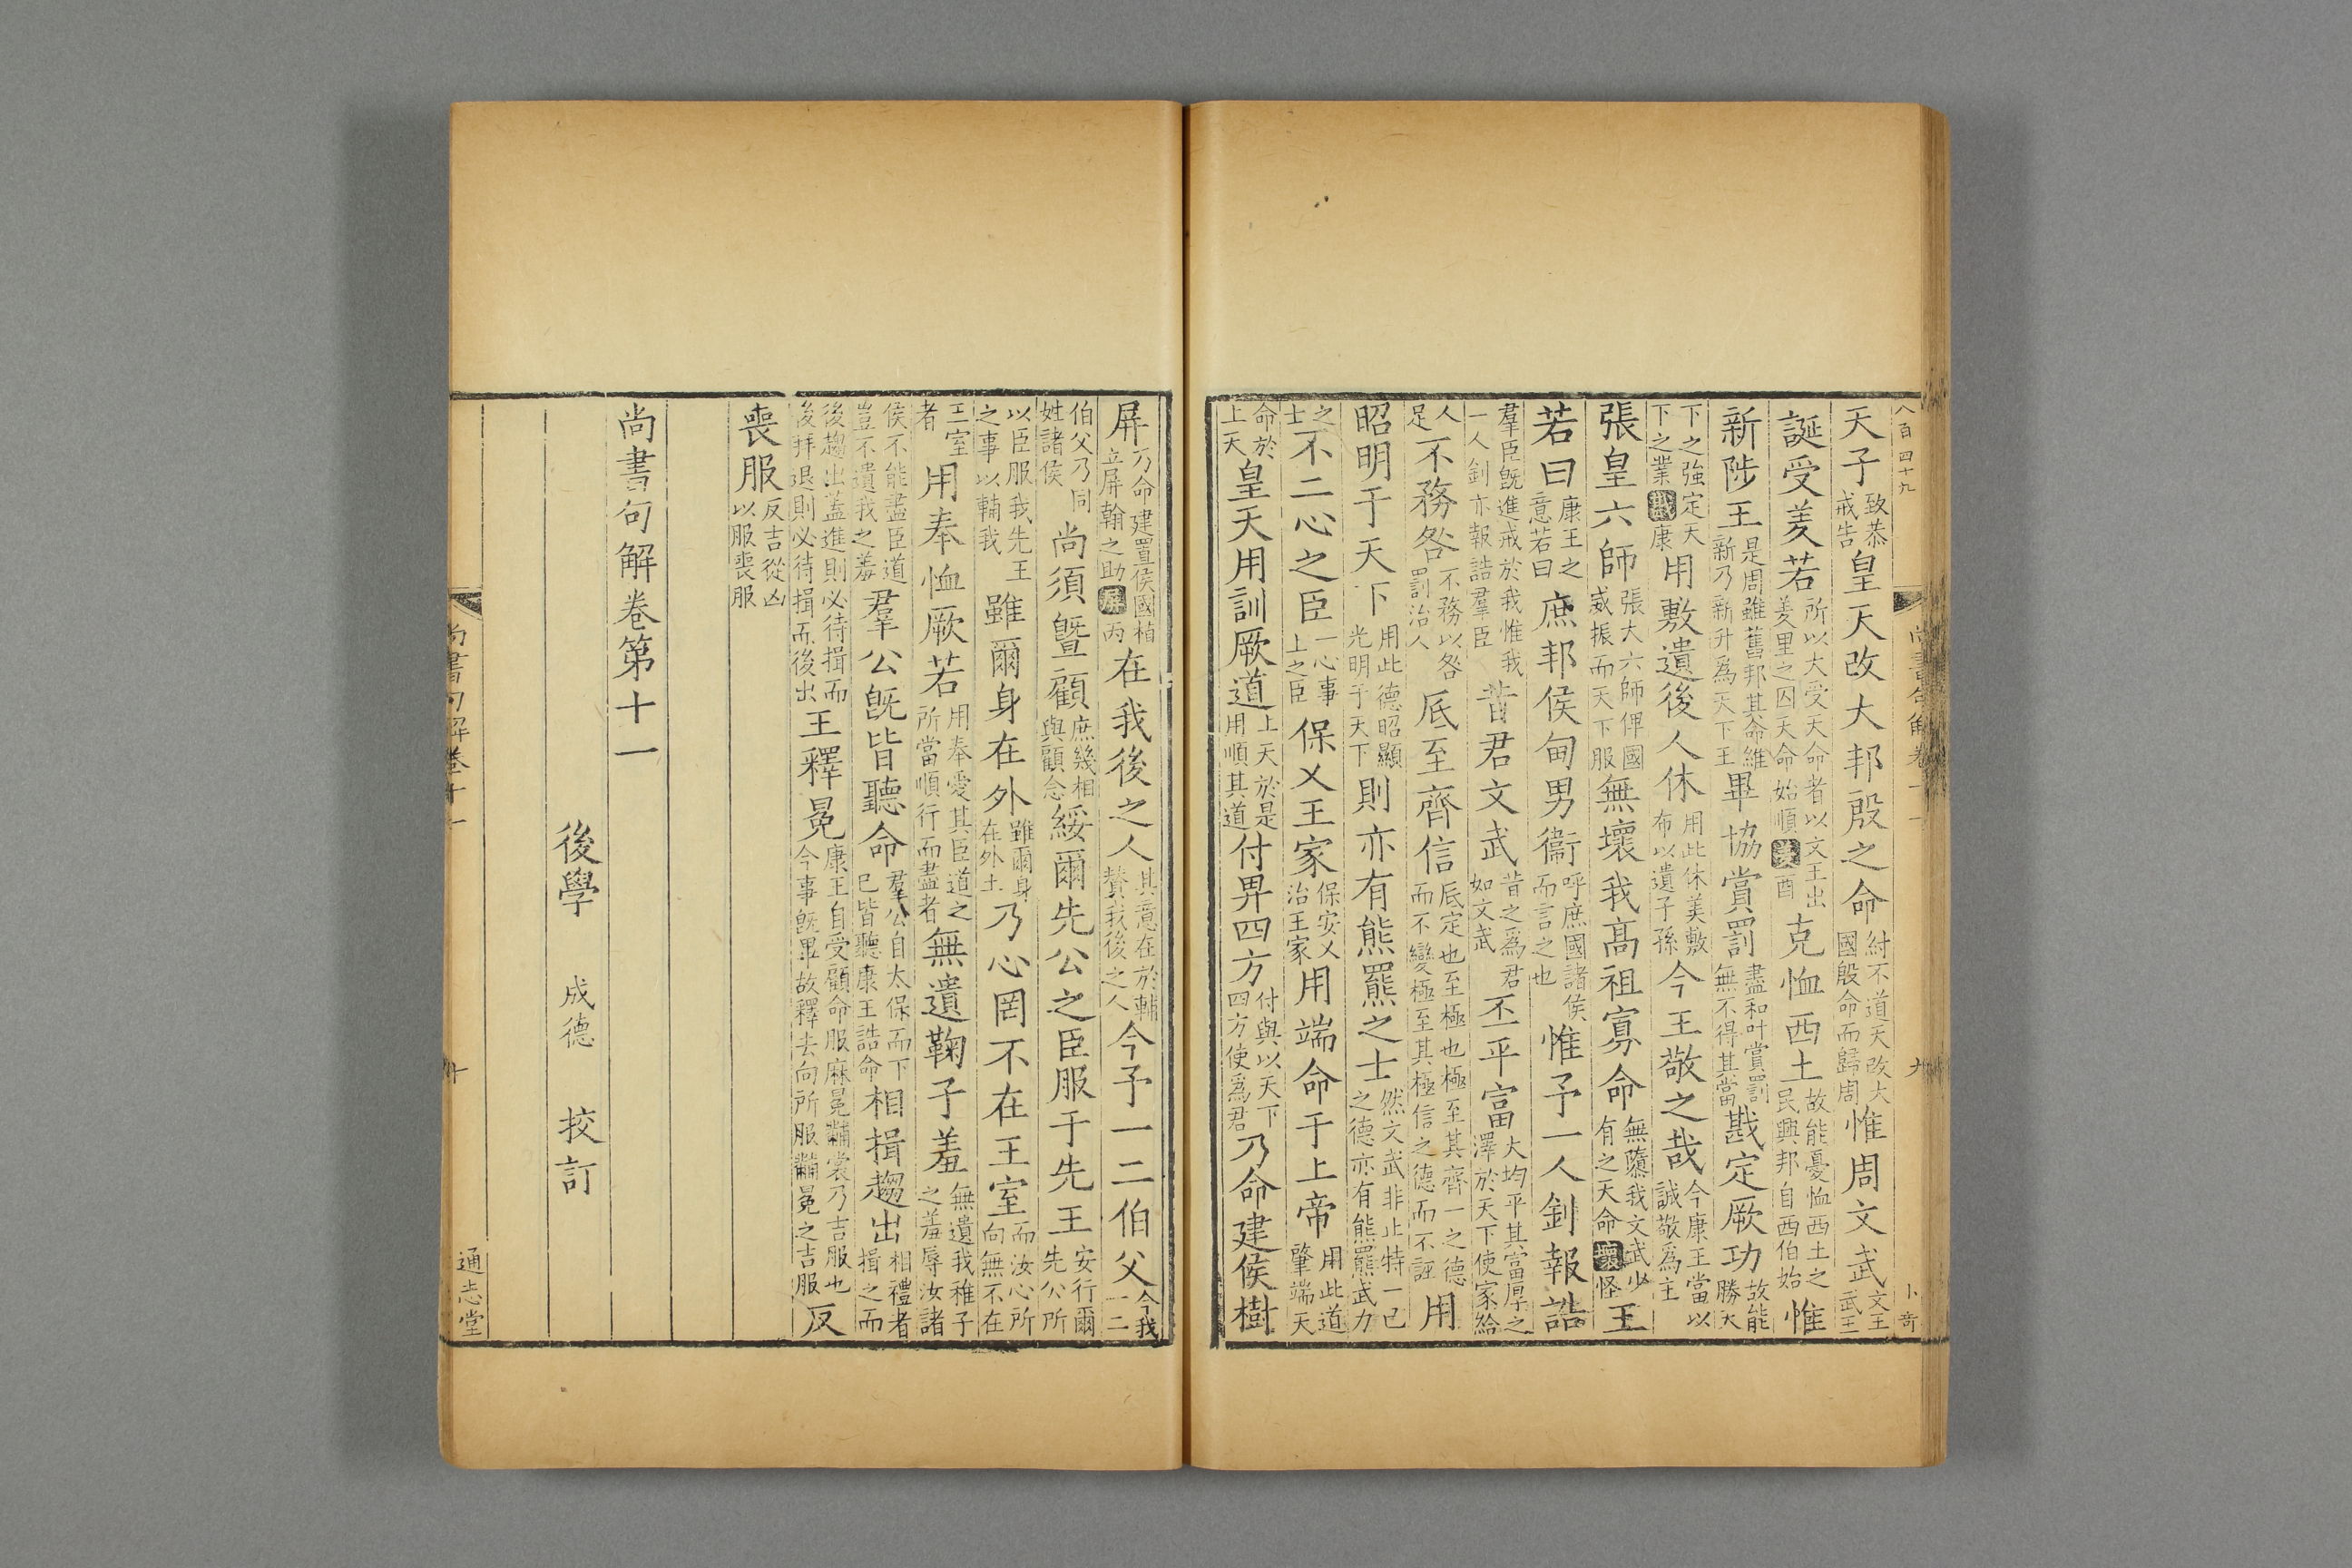 八百四十九
天子致恭戒告皇天改大邦殷之命紂不道天改大國殷命而歸周惟周文武文王武王
誕受羑若所以大受天命者以文王出羑里之囚天命始順羑酉克恤西土故能憂恤西土之民興邦自西伯始惟
新陟王是周雖舊邦其命維新乃新升爲天下王畢協賞罰盡和叶賞罰無不得其當戡定厥功故能勝大
下之強定天下之業戡康用敷遺後人休用此休美敷布以遺子孫今王敬之哉今康王當以誠敬爲主
張皇六師張大六師俾國威振而天下服無壞我高祖寡命無隳我文武少有之天命壞怪王
若曰康王之意若曰庶邦侯甸男衞呼庶國諸侯而言之也惟予一人釗報誥
羣臣旣進戒於我惟我一人釗亦報誥羣臣昔君文武昔之爲君如文武丕平富大均平其當厚之澤於天下使家給
人足不務咎不務以咎罰治人厎至齊信厎定也至極也極至其齊一之德而不變極至其極信之德而不誣用
昭明于天下用此德昭顯光明于天下則亦有熊羆之士然文武非止特一己之德亦有熊羆武力
之士不二心之臣一心事上之臣保乂王家保安乂治王家用端命于上帝用此道肇端天
命於上天皇天用訓厥道上天於是用順其道付畀四方付與以天下四方使爲君乃命建侯樹
尚書句解卷十一
九
卜奇
屏乃命建置侯國植立屏翰之助屏丙在我後之人其意在於輔贊我後之人今予一二伯父今我一二
伯父乃同姓諸侯尚須曁顧庶幾相與顧念綏爾先公之臣服于先王安行爾先公所
以臣服我先王之事以輔我雖爾身在外雖爾身在外土乃心罔不在王室而汝心所向無不在
王室者用奉恤厥若用奉憂其臣道之所當順行而盡者無遺鞠子羞無遺我稚子之羞辱汝諸
侯不能盡臣道豈不遺我之羞羣公旣皆聽命羣公自太保而下已皆聽康王誥命相揖趨出相禮者揖之而
後趨出蓋進則必待揖而後拜退則必待揖而後出王釋冕康王自受顧命服麻冕黼裳乃吉服也今事旣畢故釋去向所服黼冕之吉服反
喪服反吉從凶以服喪服
尚書句解卷第十一
後學 成德 挍訂
尚書句解卷十一
十
通志堂